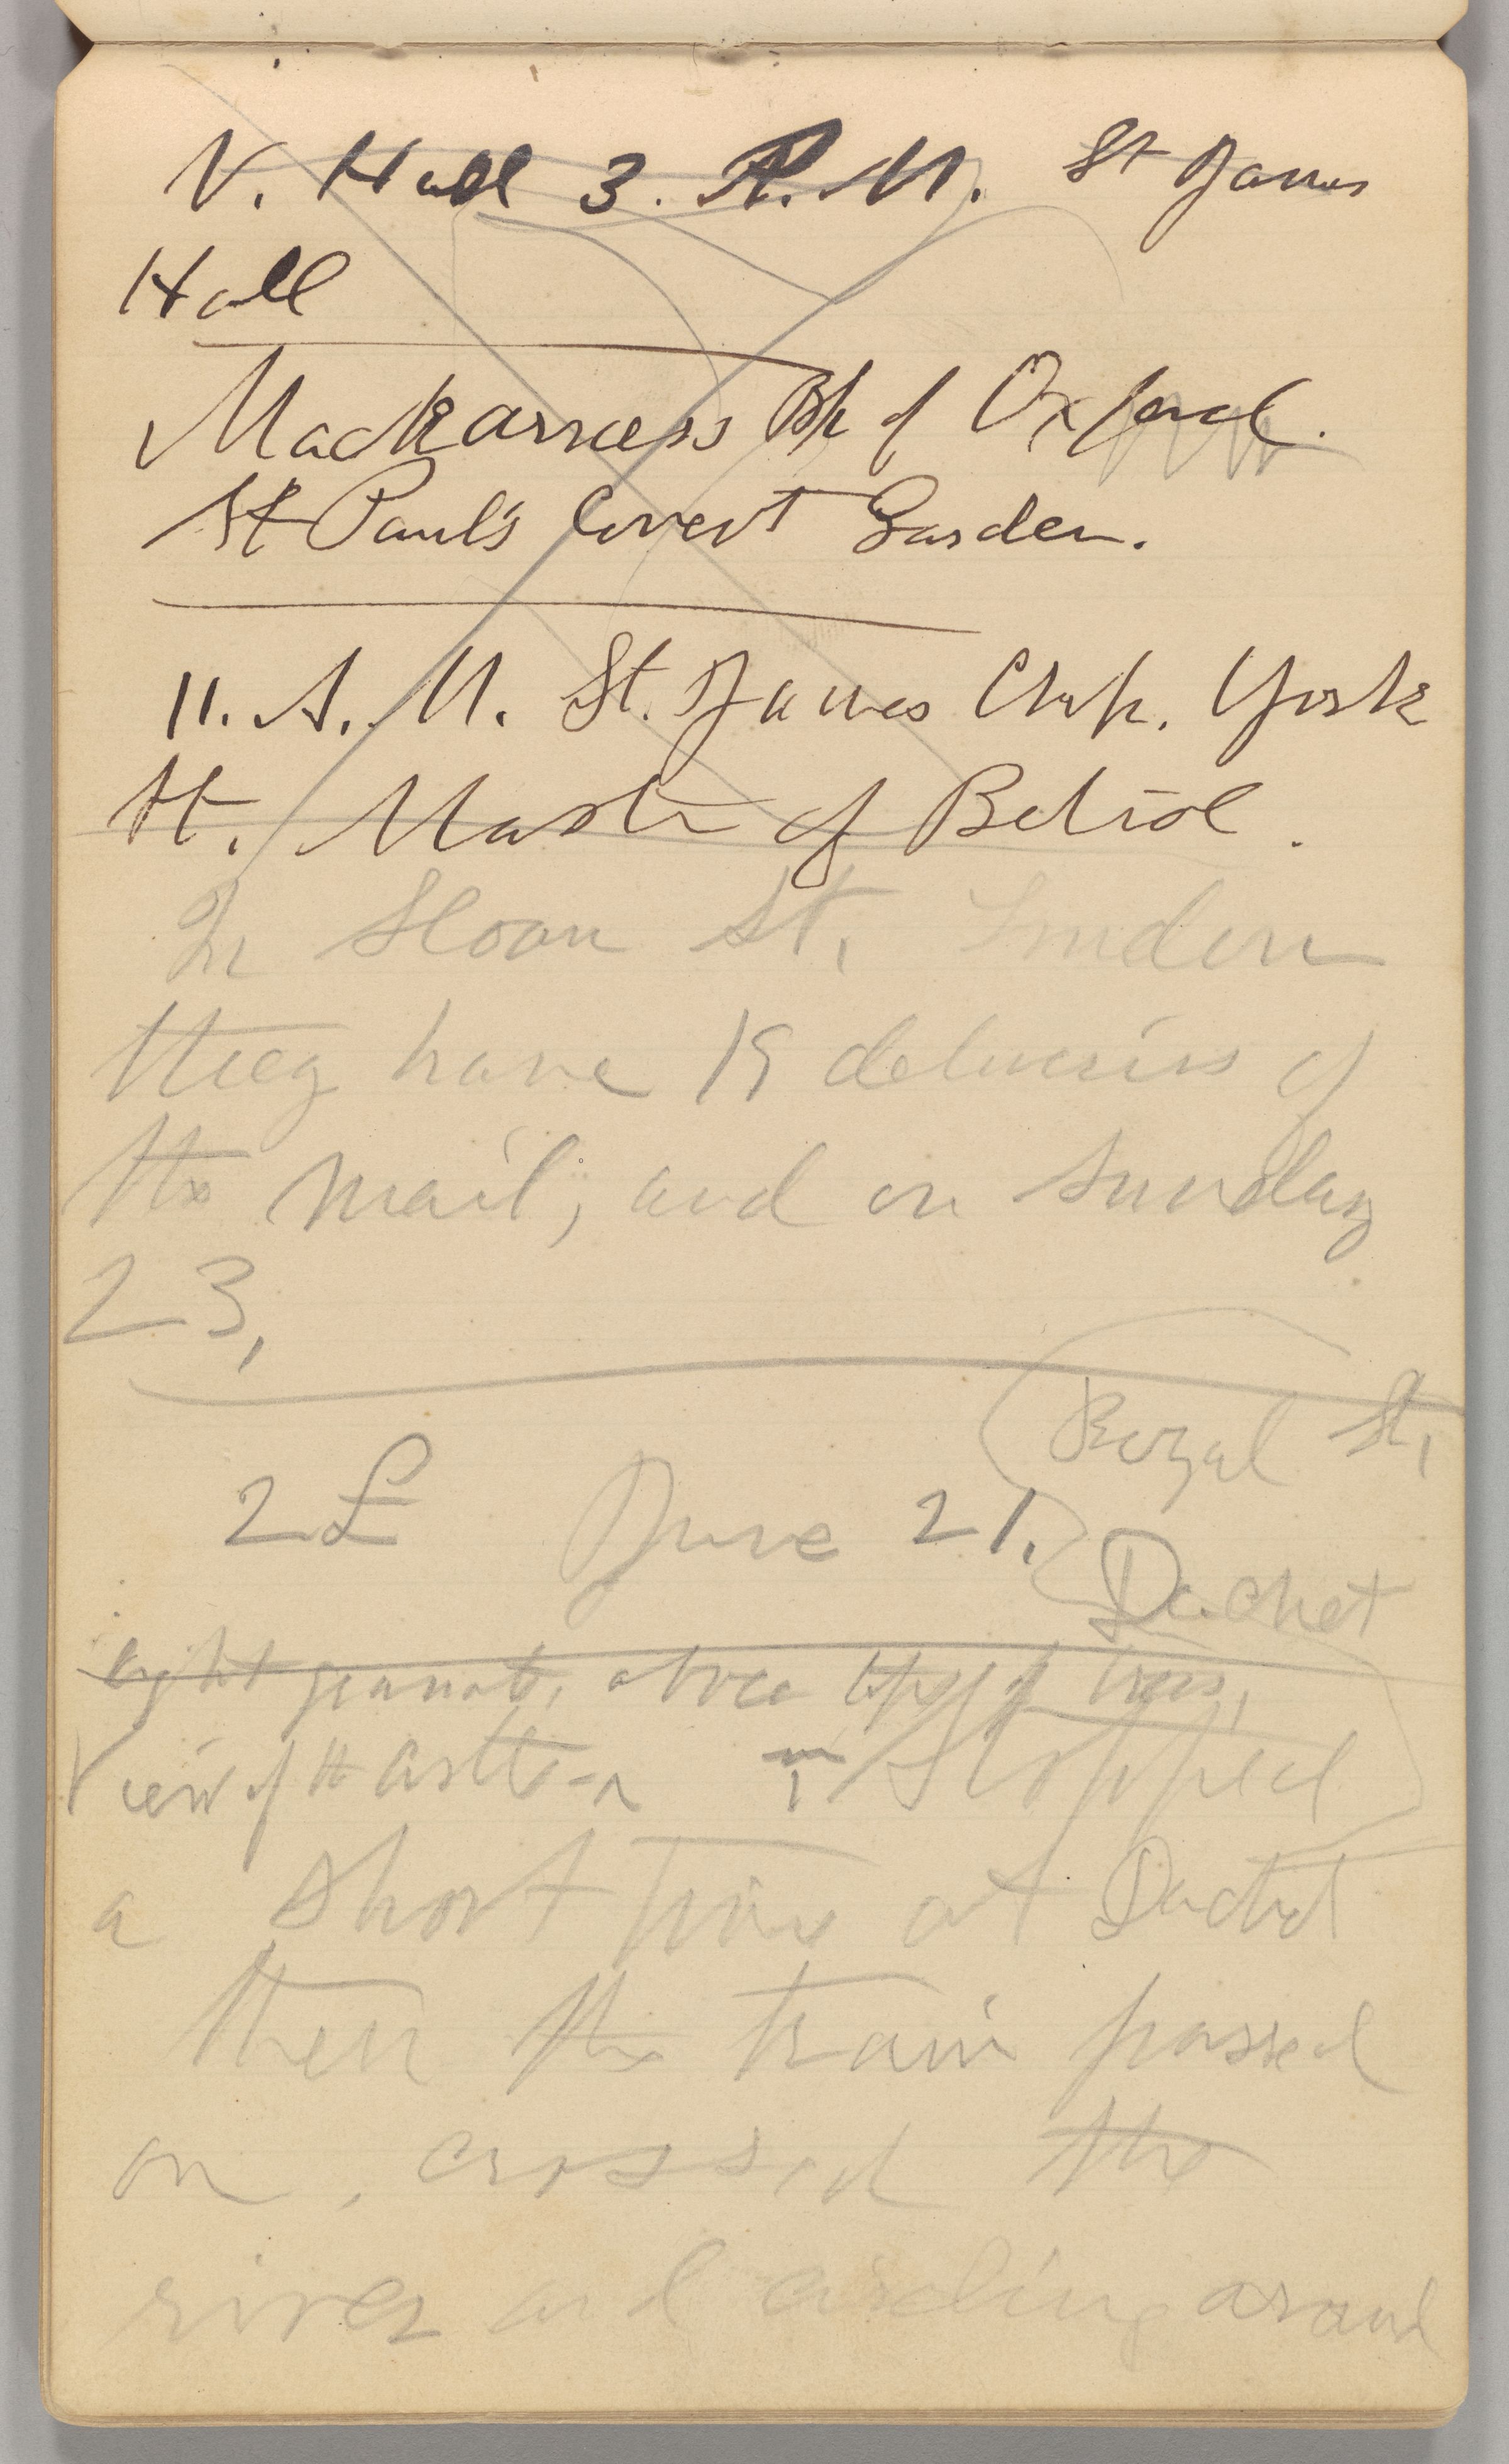 N. Hall 3. P. M. St James
Hall
Mackarness Bp of Oxford.
St Paul's Covent Garden.
11. A. M. St. James Chap. York
St. Master of Beliol.
In Sloan St. London
they have 19 deliveries of
the mail, and on Sunday
23,
Royal St,
2£ June 21.
Dachet
light granate, above tops of trees,
View of
Stopped
a short time at Dachet
then the train passed
on, crossed the
river and circling around